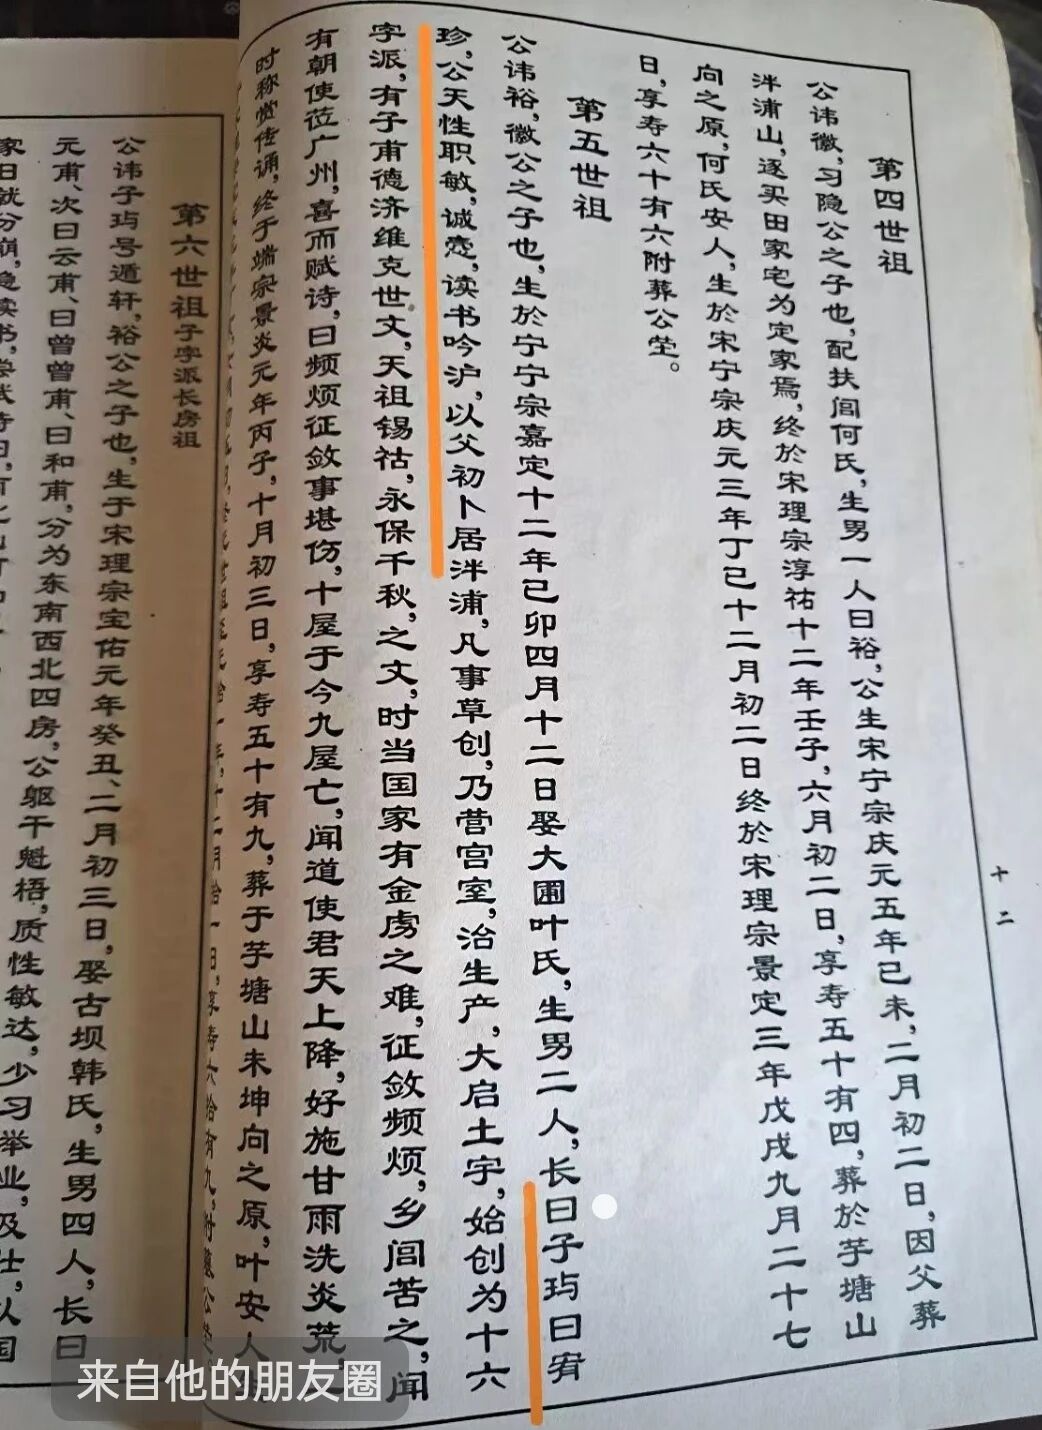 第四世祖
公讳徽，习隐公之子也，配扶闾何氏，生男一人曰裕，公生宋宁宗庆元五年己未，二月初二日，因父葬
泮浦山，逐买田家宅为定家焉，终於宋理宗淳祐十二年壬子，六月初二日，享寿五十有四，葬於芋塘山
向之原，何氏安人，生於宋宁宗庆元三年丁巳十二月初二日终於宋理宗景定三年戊戌九月二十七
日，享寿六十有六附葬公茔。
第五世祖
公讳裕，徽公之子也，生於宁宁宗嘉定十二年己卯四月十二日娶大圃叶氏，生男二人，长曰子玙曰宥
珍，公天性职敏，诚悫，读书吟沪，以父初卜居泮浦，凡事草创，乃营宫室，治生产，大启土宇，始创为十六
字派，有子甫德济维克世文，天祖锡祜，永保千秋，之文，时当国家有金虏之难，征敛频烦，乡闾苦之，闻
有朝使莅广州，喜而赋诗，曰频烦征敛事堪伤，十屋于今九屋亡，闻道使君天上降，好施甘雨洗炎荒，
时称赏传诵，终于端宗景炎元年丙子，十月初三日，享寿五十有九，葬于芋塘山未坤向之原，叶安人
十二
第六世祖子字派长房祖
公讳子玙号遁轩，裕公之子也，生于宋理宗宝佑元年癸丑、二月初三日，娶古坝韩氏，生男四人，长曰
元甫、次曰云甫、曰曾甫、曰和甫，分为东南西北四房，公躯干魁梧，质性敏达，少习举业，及仕，以国
家日就分崩，隐读书，尝赋诗曰
来自他的朋友圈